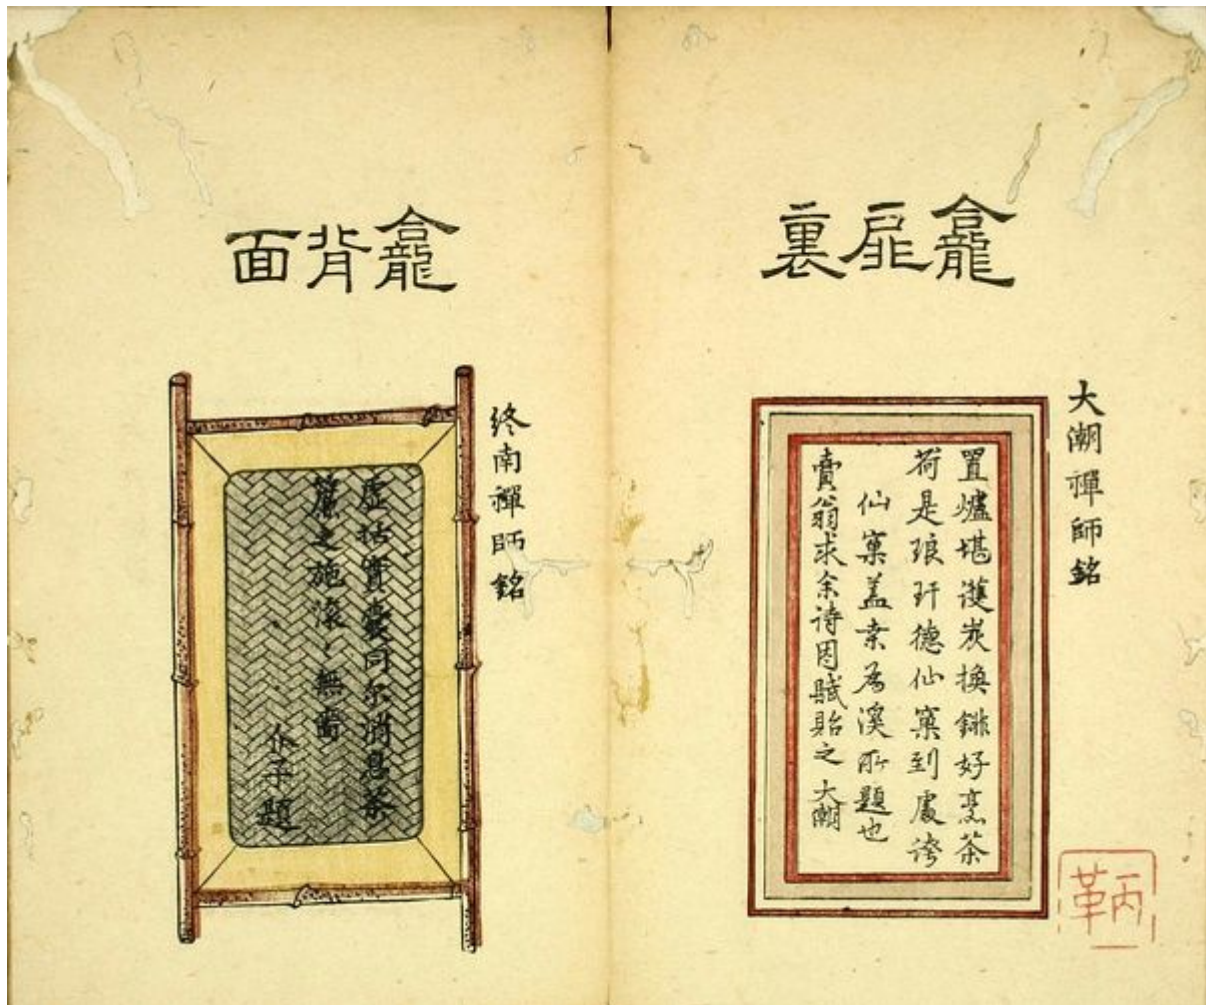 龕扉裏
大潮禪師銘
置爐堪護炭換銚好烹茶
荷是琅玕德仙窠到處誇
仙窠蓋幸為溪所題也
賣翁求余詩因賦貽之大潮
龕背面
終南禪師銘
虛括實囊同尔消息茶
簏之施滚〻無
仆子題